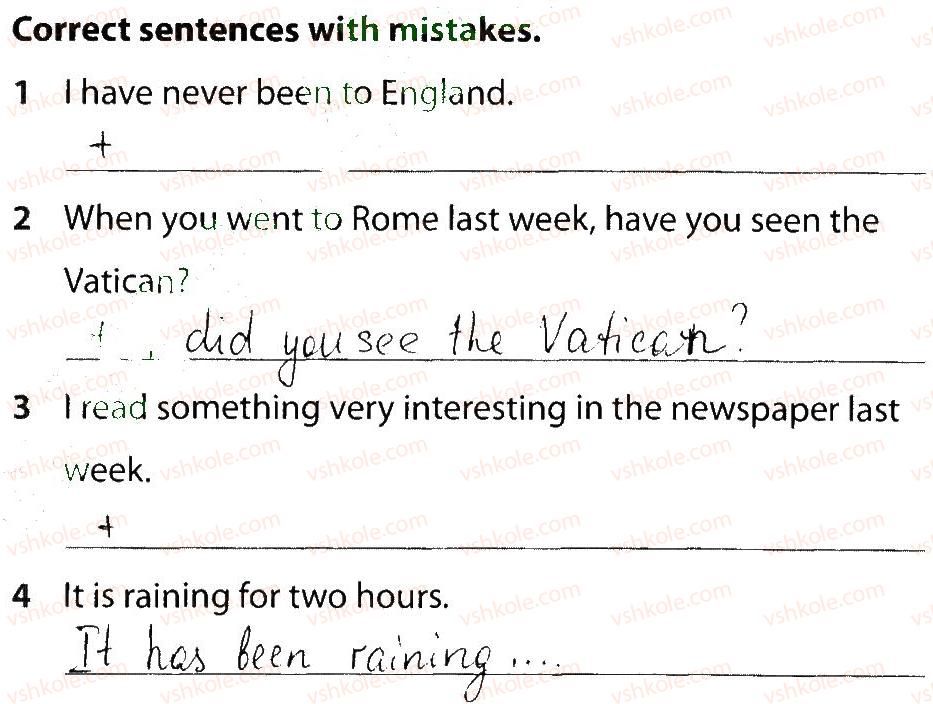 Correct sentences with mistakes.
1 I have never been to England.
+
2 When you went to Rome last week, have you seen the
Vatican?
+ did you see the Vatican?
3 I read something very interesting in the newspaper last
week.
+
4 It is raining for two hours.
It has been raining ....